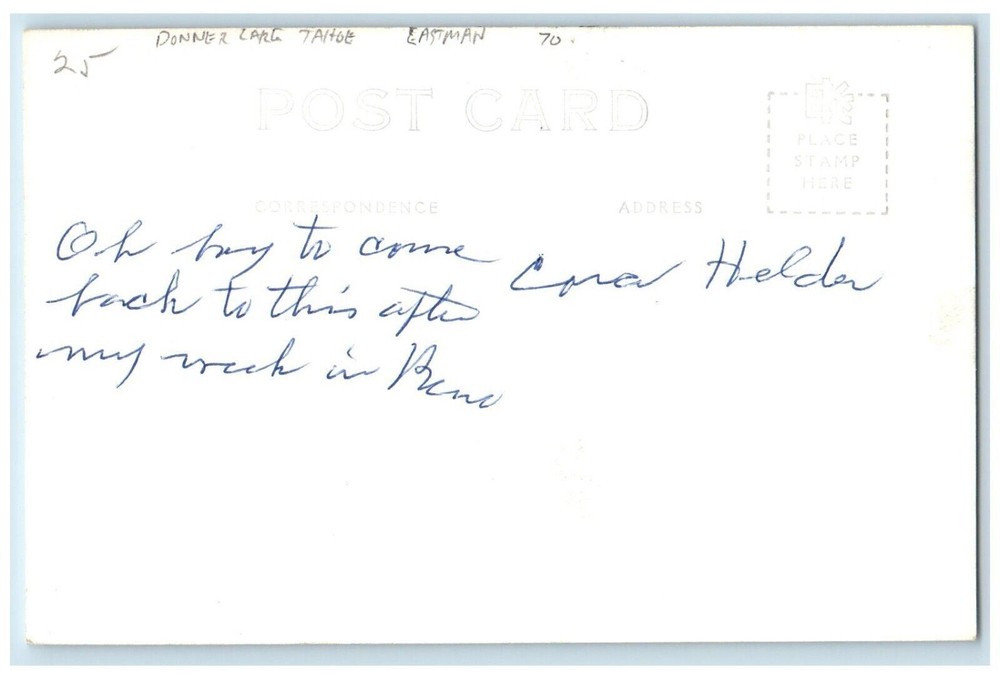 DONNER LAKE TAHOE EASTMAN 70.
25
POST CARD
EKC
PLACE
STAMP
HERE
CORRESPONDENCE ADDRESS
Oh boy to come
back to this after
my week in Reno
Cora Helder